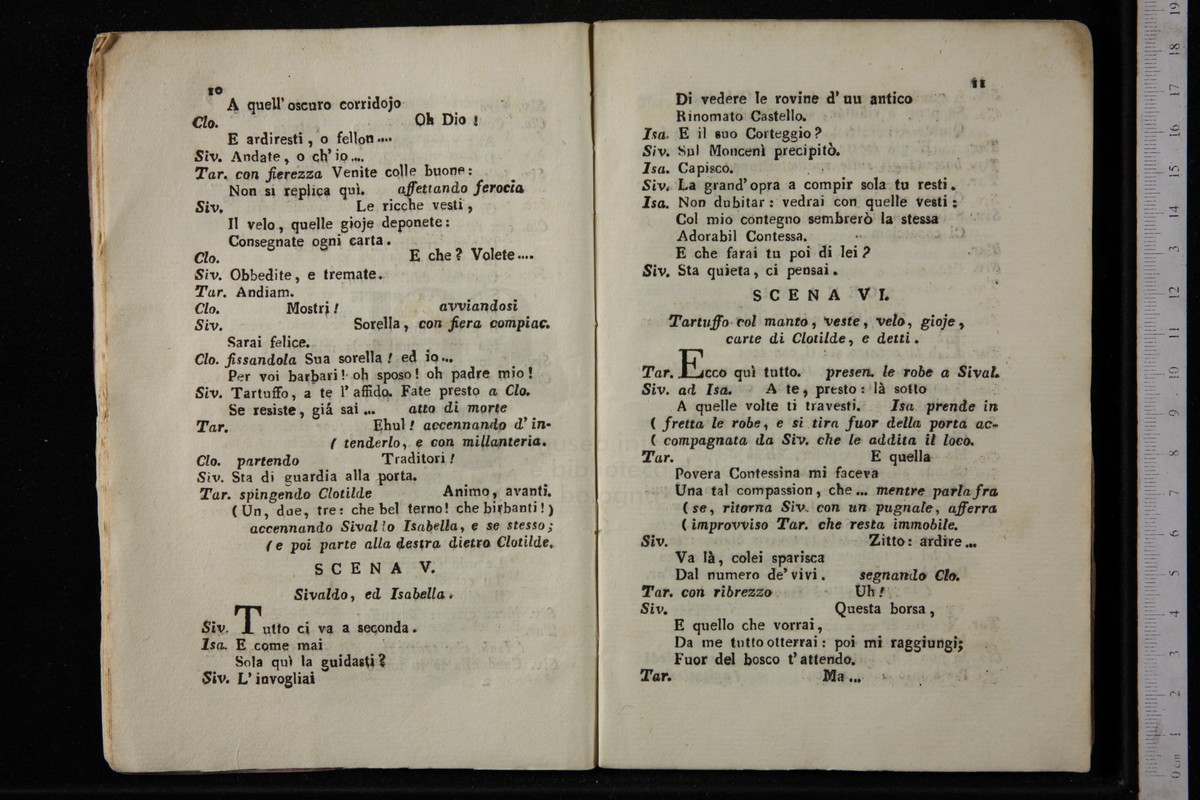 10
A quell' oscuro corridojo
Clo. Oh Dio !
E ardiresti, o fellon....
Siv. Andate, o ch' io....
Tar. con fierezza Venite colle buone:
Non si replica quì. affettando ferocia
Siv. Le ricche vesti,
Il velo, quelle gioje deponete:
Consegnate ogni carta.
Clo. E che? Volete....
Siv. Obbedite, e tremate.
Tar. Andiam.
Clo. Mostri! avviandosi
Siv. Sorella, con fiera compiac.
Sarai felice.
Clo. fissandola Sua sorella! ed io...
Per voi barbari! oh sposo! oh padre mio!
Siv. Tartuffo, a te l' affido. Fate presto a Clo.
Se resiste, giá sai... atto di morte
Tar. Ehul! accennando d' in-
( tenderlo, e con millanteria.
Clo. partendo Traditori!
Siv. Sta di guardia alla porta.
Tar. spingendo Clotilde Animo, avanti.
(Un, due, tre: che bel terno! che birbanti!)
accennando Sivaldo Isabella, e se stesso;
(e poi parte alla destra dietro Clotilde.
SCENA V.
Sivaldo, ed Isabella.
Siv. Tutto ci va a seconda.
Isa. E come mai
Sola quì la guidasti?
Siv. L' invogliai
11
Di vedere le rovine d' uu antico
Rinomato Castello.
Isa. E il suo Corteggio?
Siv. Sul Moncenì precipitò.
Isa. Capisco.
Siv. La grand' opra a compir sola tu resti.
Isa. Non dubitar: vedrai con quelle vesti:
Col mio contegno sembrerò la stessa
Adorabil Contessa.
E che farai tu poi di lei?
Siv. Sta quieta, ci pensai.
SCENA VI.
Tartuffo col manto, veste, velo, gioje,
carte di Clotilde, e detti.
Tar. Ecco quì tutto. presen. le robe a Sival.
Siv. ad Isa. A te, presto: là sotto
A quelle volte ti travesti. Isa prende in
( fretta le robe, e si tira fuor della porta ac-
( compagnata da Siv. che le addita il loco.
Tar. E quella
Povera Contessina mi faceva
Una tal compassion, che... mentre parla fra
(se, ritorna Siv. con un pugnale, afferra
(improvviso Tar. che resta immobile.
Siv. Zitto: ardire...
Va là, colei sparisca
Dal numero de' vivi. segnando Clo.
Tar. con ribrezzo Uh!
Siv. Questa borsa,
E quello che vorrai,
Da me tutto otterrai: poi mi raggiungi;
Fuor del bosco t' attendo.
Tar. Ma...